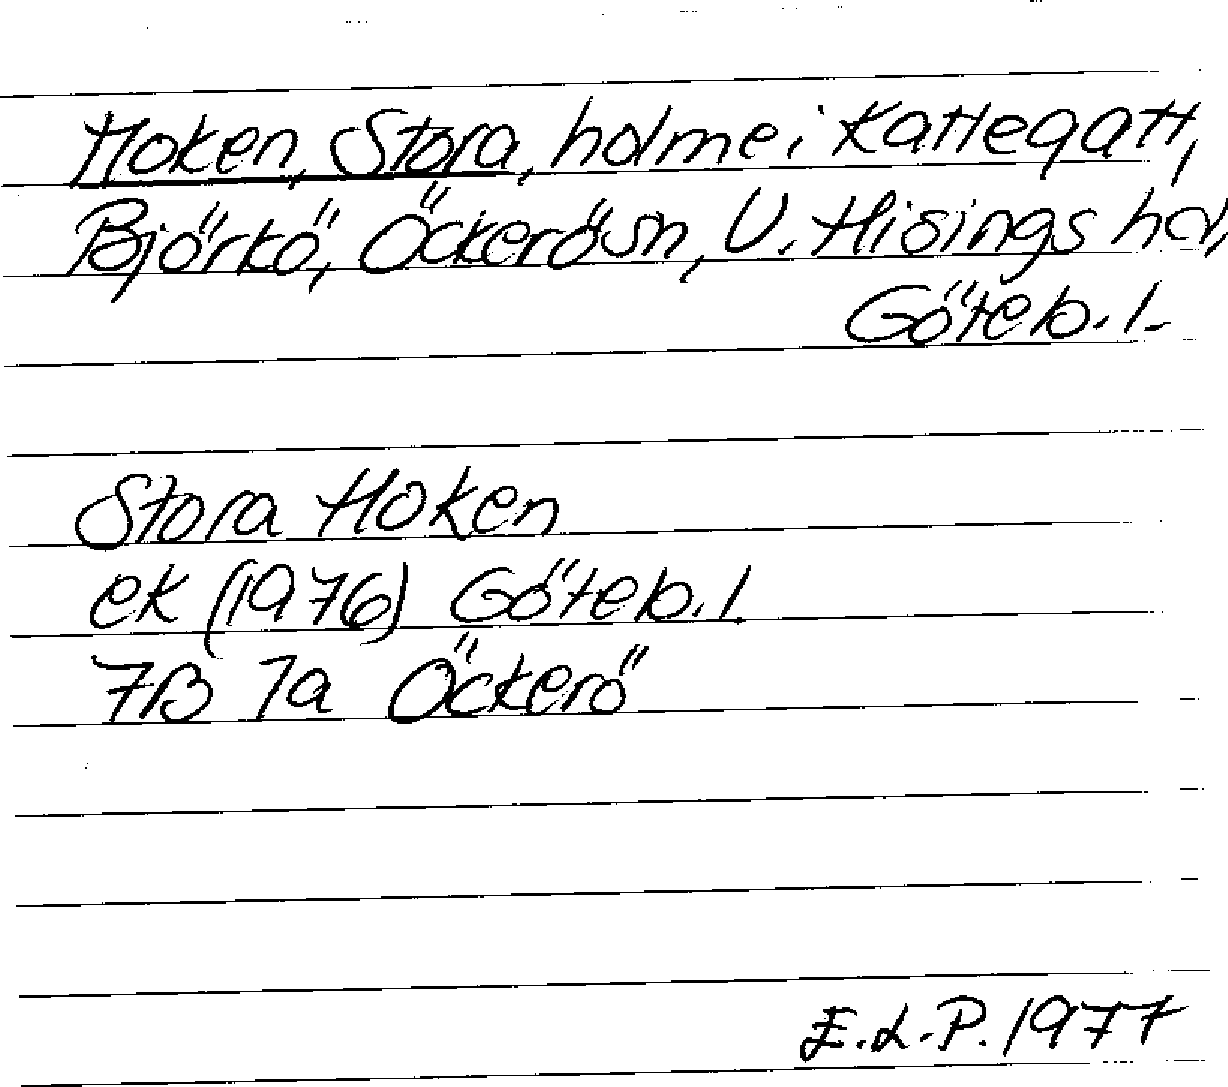 Hoken, Stora, holme i Kattegatt,
Björkö, Öckerö sn, V. Hisings hd,
Göteb. l.
Stora Hoken
ek (1976) Göteb. l.
7B 1a Öckerö
E.L.P. 1977